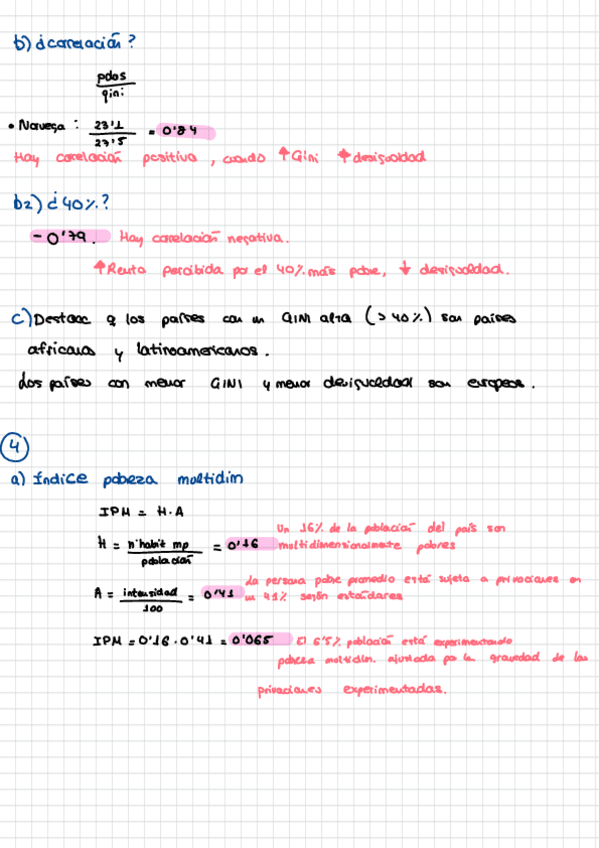 b) ¿correlación?
pdos
gini
• Noruega : 23'1 / 27'5 = 0'84
Hay correlación positiva, cuando ↑Gini ↑desigualdad
b2) ¿40%?
-0'79. Hay correlación negativa.
↑Renta percibida por el 40% más pobre, ↓ desigualdad.
c) Destaca q los países con un GINI alta (>40%) son países
africanos y latinoamericanos.
Los países con menor GINI y menor desigualdad son europeos.
4
a) Índice pobeza multidim
IPM = H·A
Un 16% de la población del país son
H = nºhabit mp / población = 0'16 multidimensionalmente pobres
La persona pobre promedio está sujeta a privaciones en
A = intensidad / 100 = 0'41 un 41% según estándares
IPM = 0'16·0'41 = 0'065 El 6'5% población está experimentando
pobeza multidim. ajustada por la gravedad de las
privaciones experimentadas.